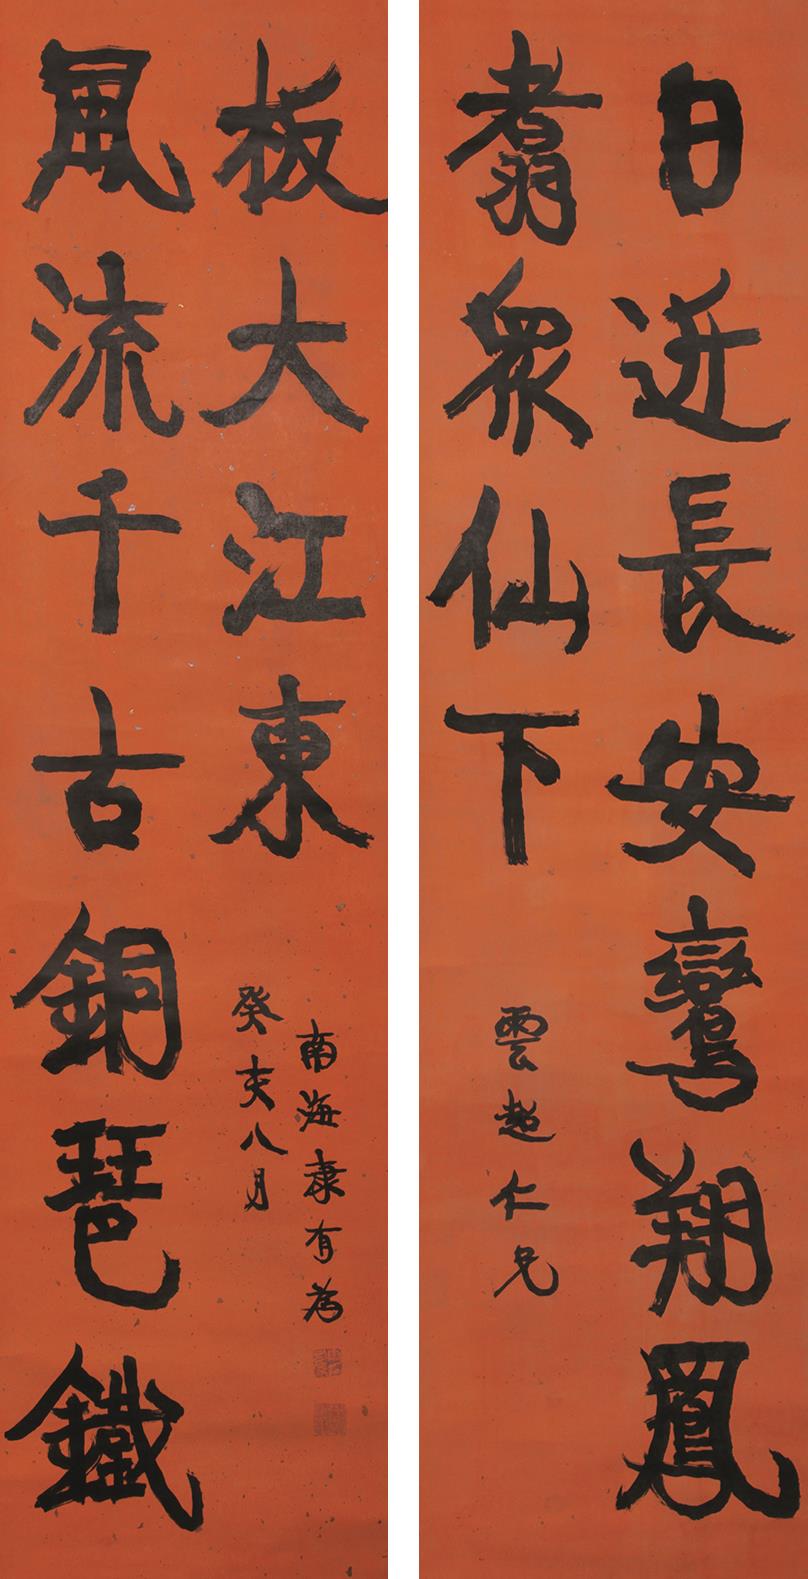 日近長安鸞翔鳳
翥眾仙下
雲超仁兄
風流千古銅琶鐵
板大江東
癸亥八月
南海康有為